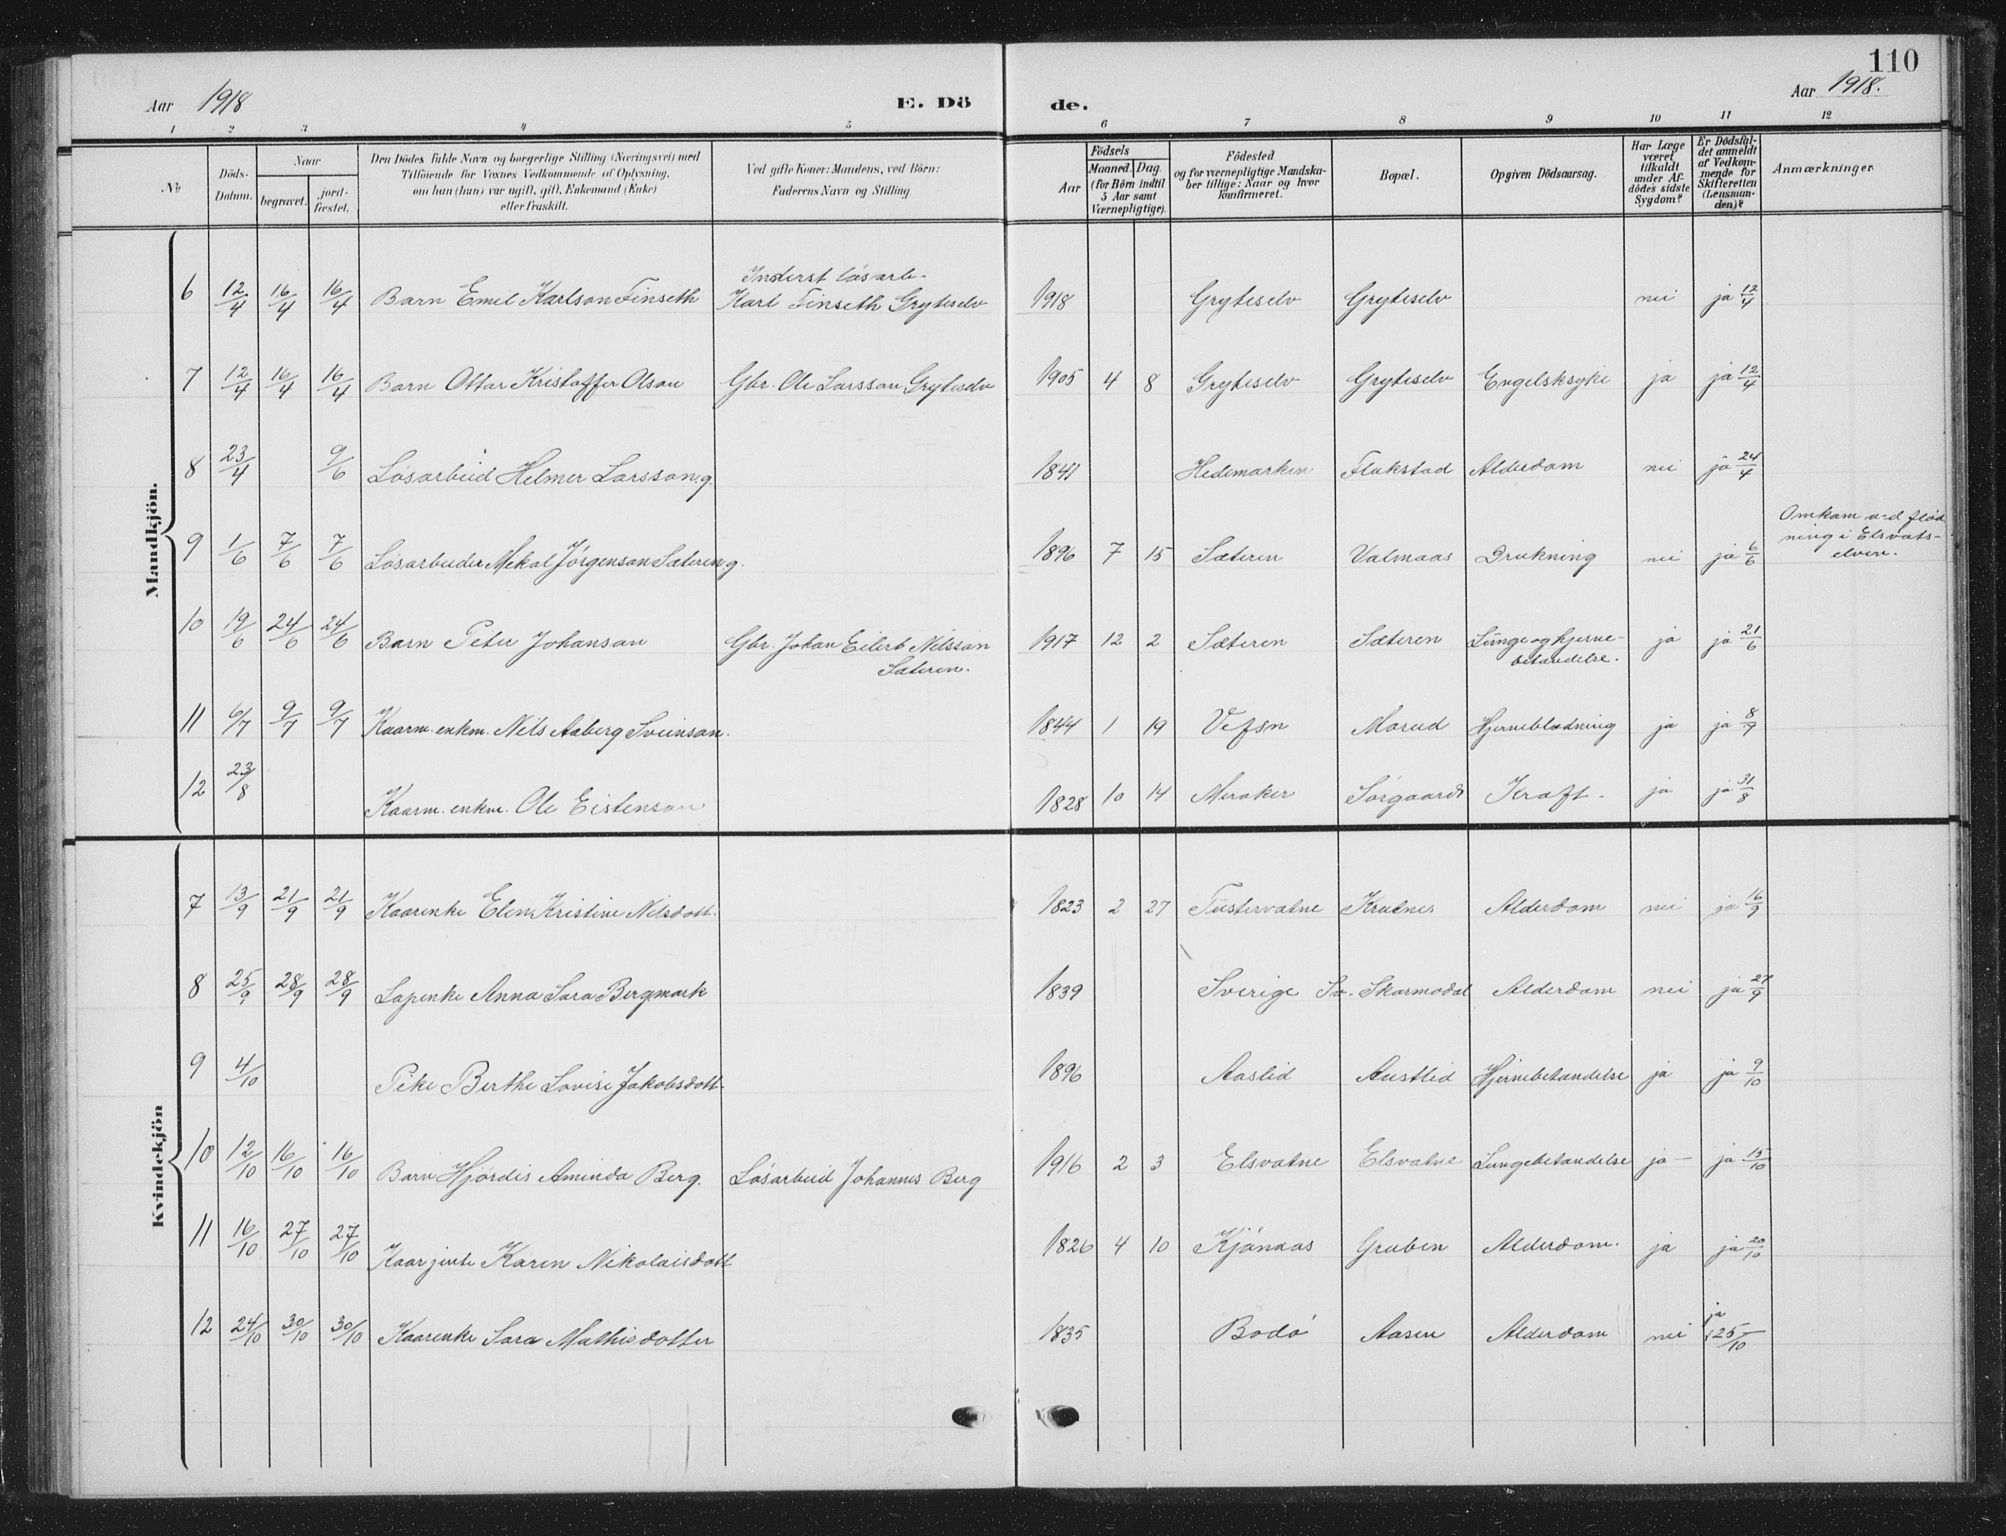 110
Aar 1918
E. Dö
de.
Aar 1918.
1 2 3 4 5 6 7 8 9 10 11 12
No
Döds-Datum.
Naar
begravet.
jord-fæstet.
Den Dödes fulde Navn og borgerlige Stilling (Næringsvei) med
Tilföiende for Voxnes Vedkommende af Oplysning,
om han (hun) var ugift, gift, Enkemand (Enke)
eller fraskilt.
Ved gifte Koner: Mandens, ved Börn:
Faderens Navn og Stilling.
Födsels
Aar
Maaned.
Dag.
(for Börn indtil
5 Aar samt
Værnepligtige).
Födested
og for værnepligtige Mandska-
ber tillige: Naar og hvor
konfirmeret.
Bopæl.
Opgiven Dödsaarsag.
Har Læge
været
tilkaldt
under Af-
dödes sidste
Sygdom?
Er Dödsfal-
det anmeldt
af Vedkom-
mende for
Skifteretten
(Lensman-
den)?
Anmærkninger.
Mandkjön.
Inderst løsarb.
6 12/4 16/4 16/4 Barn Emil Karlson Finseth Karl Finseth Gryteselv 1918 Gryteselv Gryteselv nei ja 12/4
7 12/4 16/4 16/4 Barn Ottar Kristoffer Olson Gbr. Ole Larsson Gryteselv 1905 4 8 Gryteselv Gryteselv Engelsksyke ja ja 12/4
8 23/4 9/6 Løsarbeid Helmer Larsson g. 1841 Hedemarken Flakstad Alderdom nei ja 24/4
9 1/6 7/6 7/6 Løsarbeider Mekal Jørgenson Sæteren g. 1896 7 15 Sæteren Valmaas Drukning nei ja 6/6 Omkom ved flød
ning i Elsvats-
elven.
10 19/6 24/6 24/6 Barn Peter Johanson Gbr. Johan Eilert Nilsson 1917 12 2 Sæteren Sæteren Lunge og hjerne- ja ja 21/6
Sæteren. betændelse.
11 6/7 9/7 9/7 Kaarm. enkm. Nils Aaberg Sveinson. 1844 1 19 Vefsn Morud Hjerneblødning ja ja 8/9
12 23/8 Kaarm. enkm. Ole Eistenson 1828 10 14 Meraker Sørgaard Kræft. ja ja 31/8
Kvindekjön
7 13/9 21/9 21/9 Kaarenke Elen Kristine Nilsdott. 1823 2 27 Tustervatne Krutnes Alderdom nei ja 16/9
8 25/9 28/9 28/9 Lapenke Anna Sara Bergmark 1839 Sverige Sv. Skarmodal Alderdom nei ja 27/9
9 4/10 Pike Berthe Lovise Jakobsdott 1896 Aaslid Austlid Hjernebetændelse ja ja 9/10
10 12/10 16/10 16/10 Barn Hjørdis Aminda Berg. Løsarbeid Johannes Berg 1916 2 3 Elsvatne Elsvatne Lungebetændelse ja ja 15/10
11 16/10 27/10 27/10 Kaarjente Karen Nikolaisdott 1826 4 10 Kjønaas Gruben Alderdom. ja ja 20/10
12 24/10 30/10 30/10 Kaarenke Sara Mathisdotter 1835 Bodø Aasen Alderdom nei ja 25/10